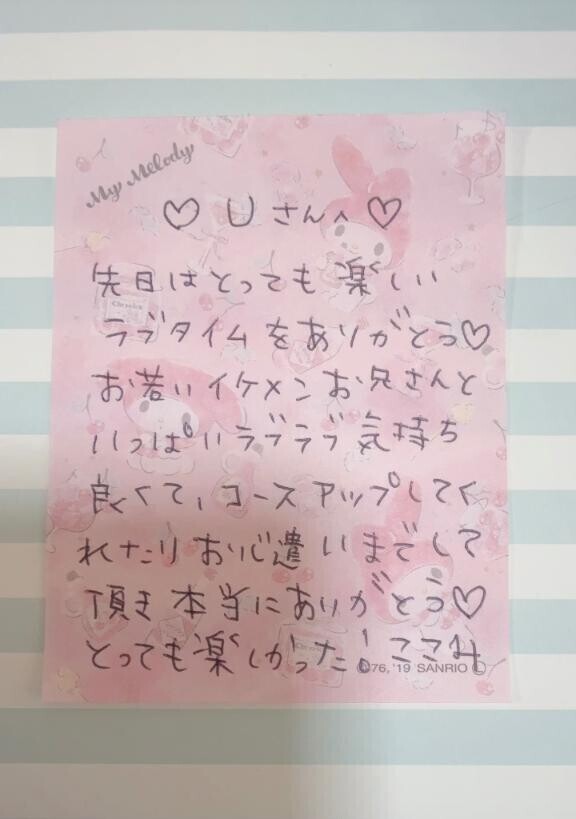 My Melody
♡ Uさんへ ♡
先日はとっても楽しい
ラブタイムをありがとう♡
お若いイケメンお兄さんと
いっぱいラブラブ気持ち
良くて、コースアップしてく
れたりお心遣いまでして
頂き本当にありがとう♡
とっても楽しかった！ここみ
©'76, '19 SANRIO Ⓛ